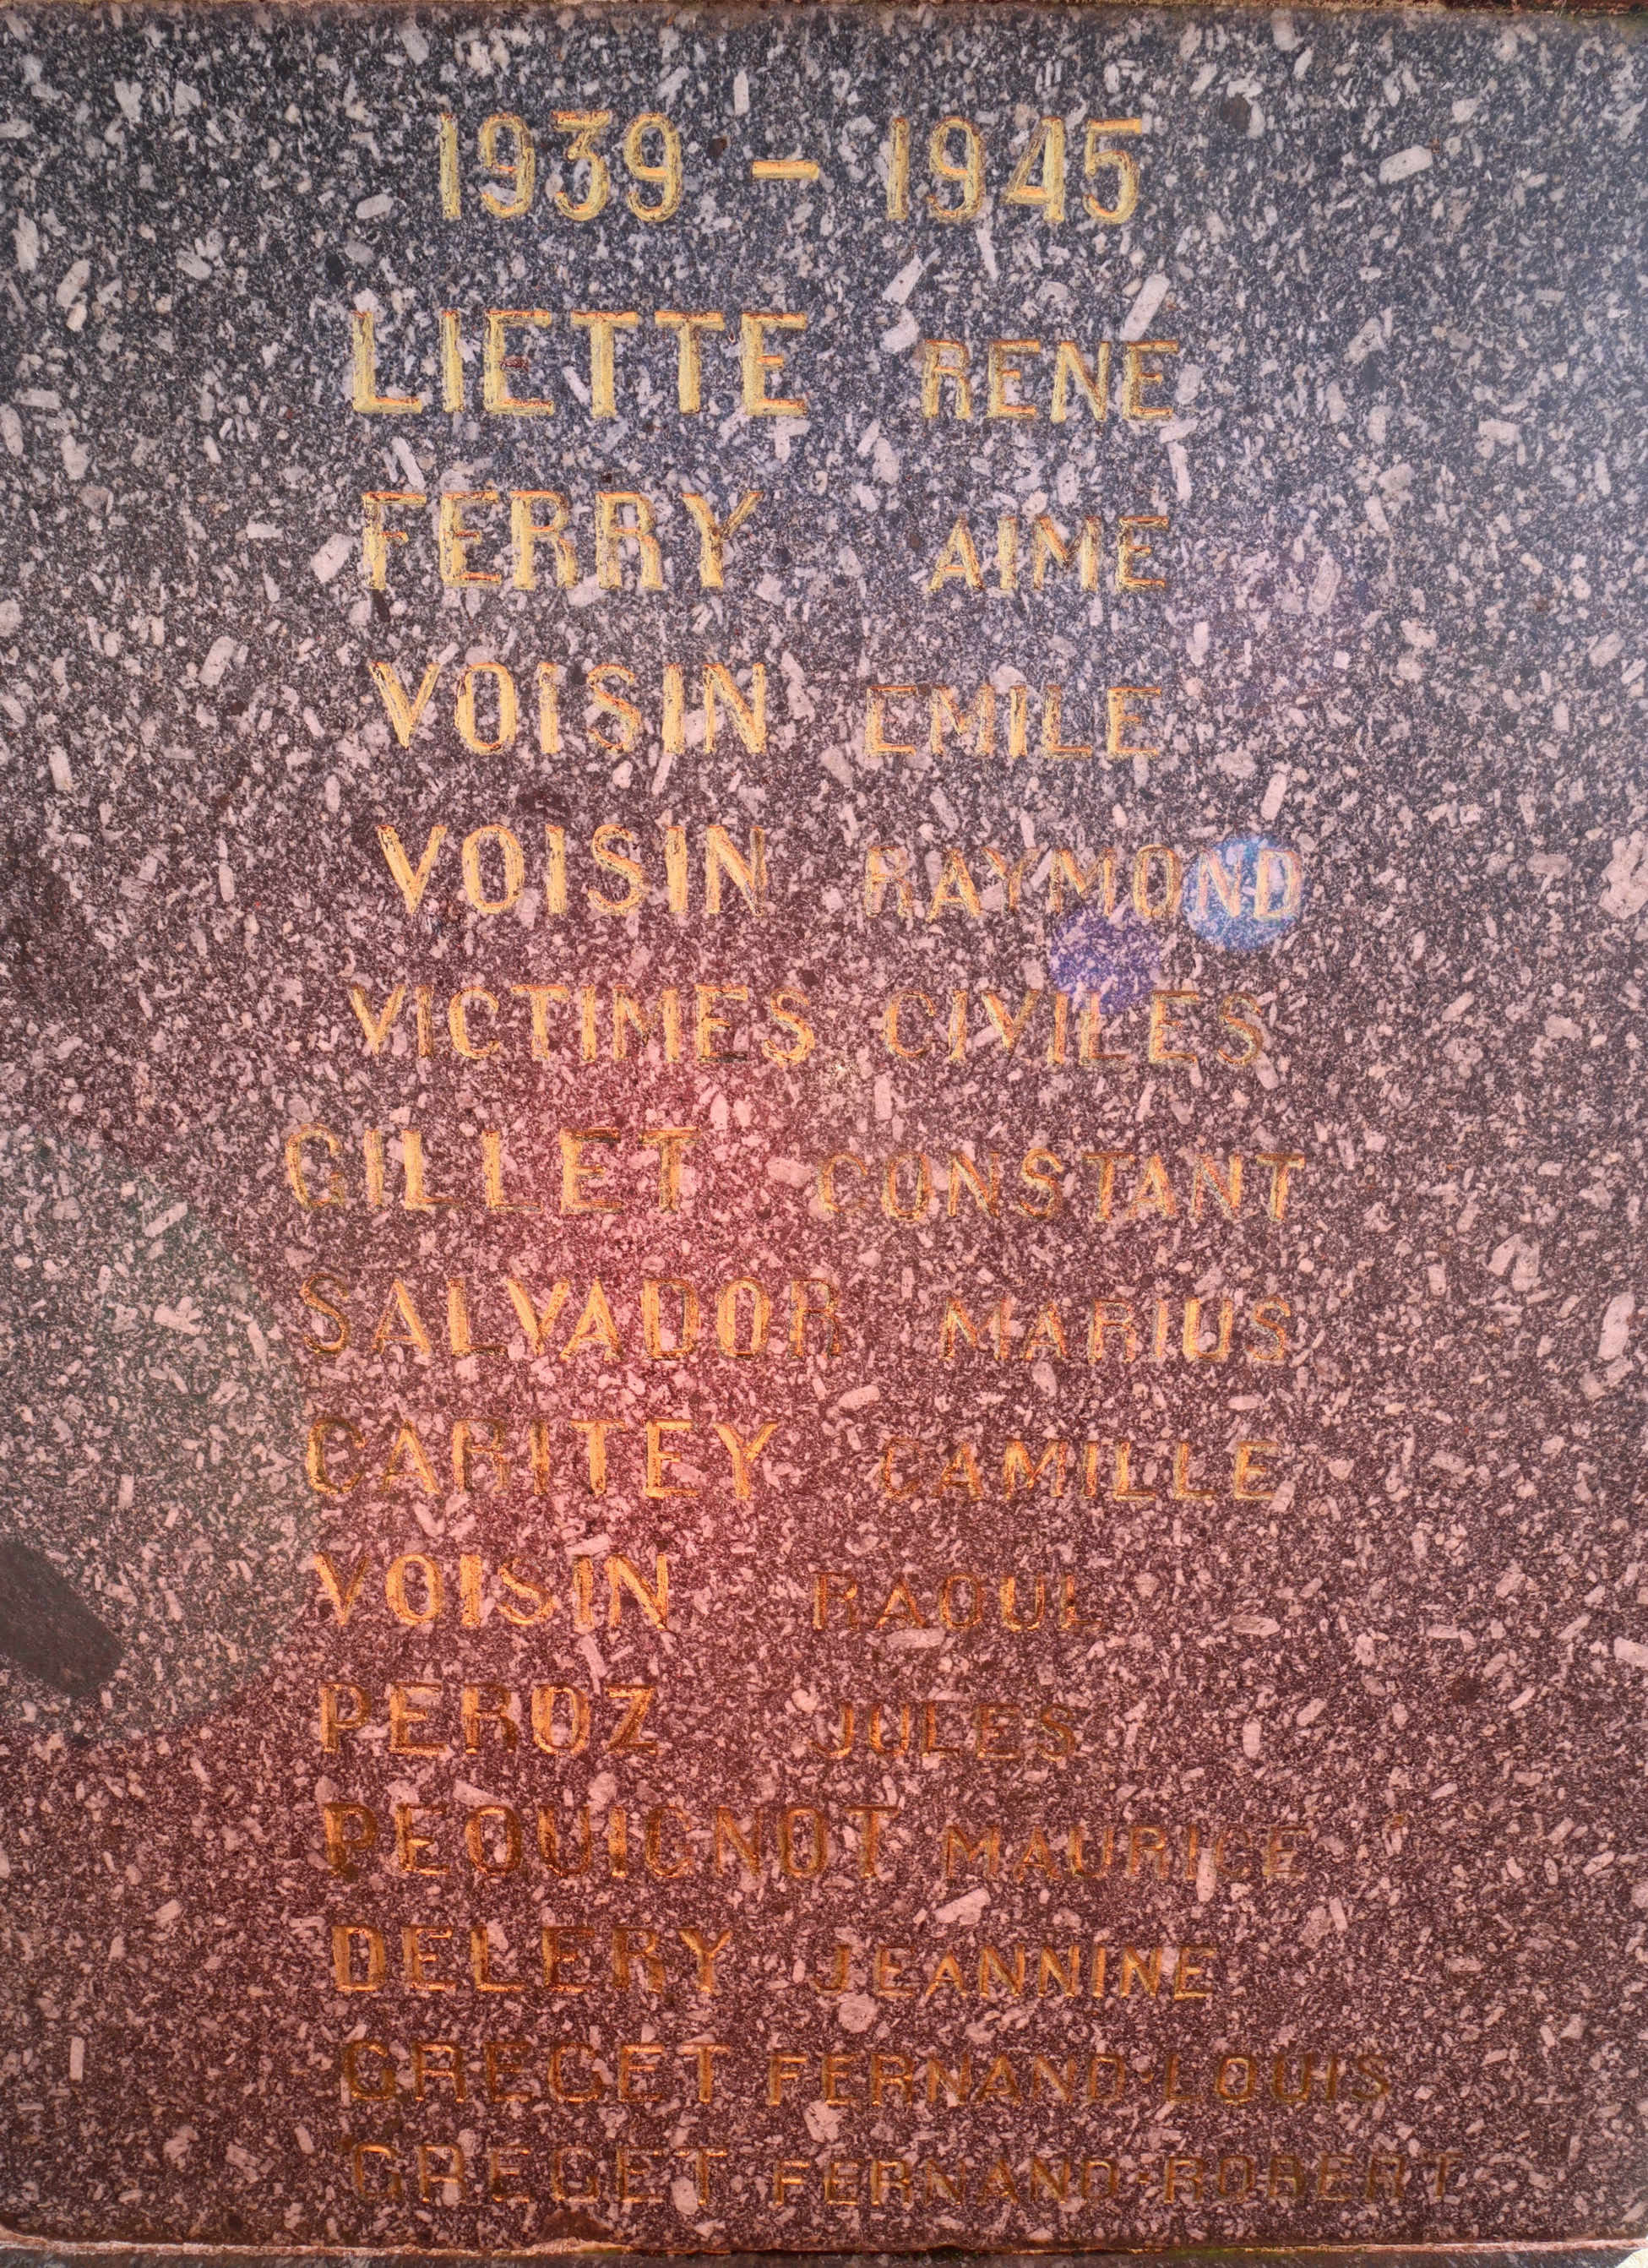 1939 - 1945
LIETTE RENE
FERRY AIME
VOISIN EMILE
VOISIN RAYMOND
VICTIMES CIVILES
GILLET CONSTANT
SALVADOR MARIUS
CARITEY CAMILLE
VOISIN RAOUL
PEROZ JULES
PEQUIGNOT MAURICE
DELERY JEANNINE
GREGET FERNAND·LOUIS
GREGET FERNAND·ROBERT